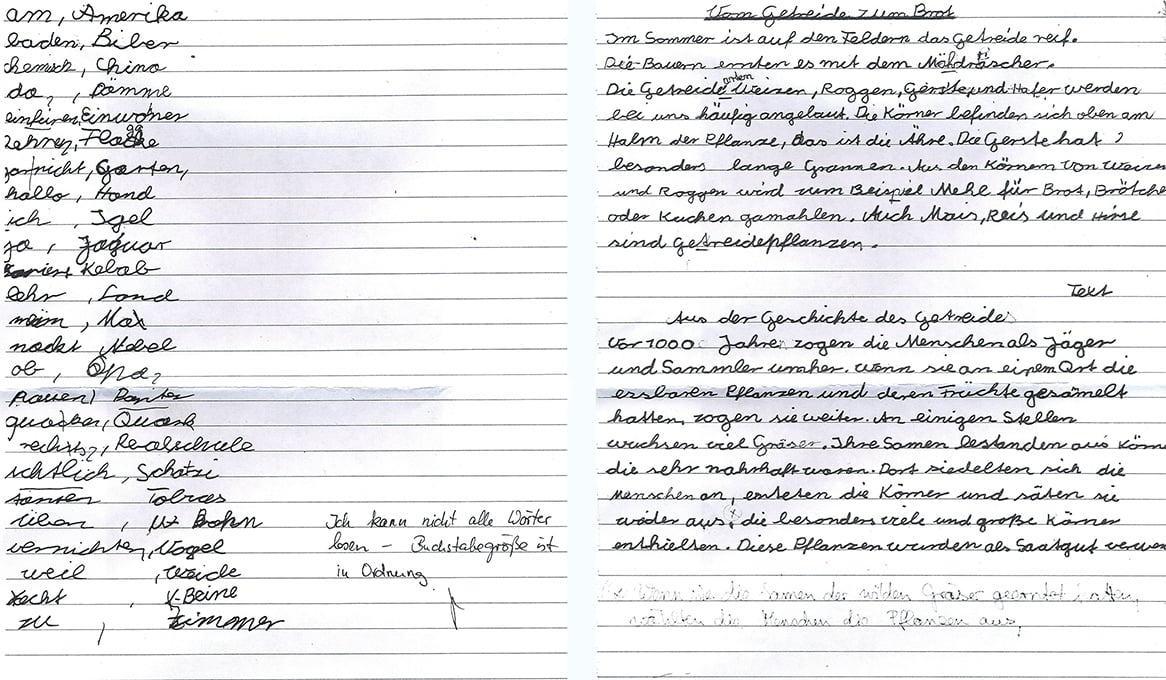 am, Amerika
baden, Biber
chemisch, China
da?, Dämme
einfüren, Einwohner
Flagge
nicht, Garten,
hallo, Hand
ich, Igel
ja, Jaguar
Kebab
sehr, Land
mein, Max
nackt Nebel
ob, Opa?
quaken, Quark
rechts?, Realschule
sichtlich, Schatzi
Tobias
üben, U-Bahn
vernichten, Vogel
weil, Weide
X-Beine
zu, Zimmer
Ich kann nicht alle Wörter
lesen – Buchstabegröße ist
in Ordnung
Vom Getreide zum Brot
Im Sommer ist auf den Feldern das Getreide reif.
Die Bauern ernten es mit dem Mähdräscher.
Die Getreidearten Weizen, Roggen, Gerste und Hafer werden
bei uns häufig angebaut. Die Körner befinden sich oben am
Halm der Pflanze, das ist die Ähre. Die Gerste hat ?
besonders lange Grannen. Aus den Körnern von Weizen
und Roggen wird zum Beispiel Mehl für Brot, Brötche
oder Kuchen gamahlen. Auch Mais, Reis und Hirse
sind Getreidepflanzen.
Text
Aus der Geschichte des Getreides
Vor 1000 Jahren zogen die Menschen als Jäger
und Sammler umher. Wenn sie an einem Ort die
essbaren Pflanzen und deren Früchte gesamelt
hatten, zogen sie weiter. An einigen Stellen
wuchsen viel Gräser. Ihre Samen bestanden aus Körne
die sehr nahrhaft waren. Dort siedelten sich die
Menschen an, ernteten die Körner und säten sie
wider aus, die besonders viele und große Körner
enthielten. Diese Pflanzen wurden als Saatgut verwen
Wenn sie die Samen der wilden Gräser geerntet hatten,
wählten die Menschen die Pflanzen aus,